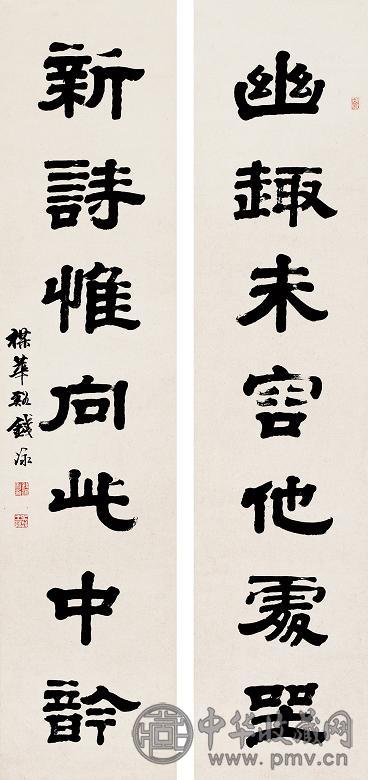 幽趣未容他處
新詩惟向此中䪩
楳華谿錢泳
中华收藏网
www.pmv.cn